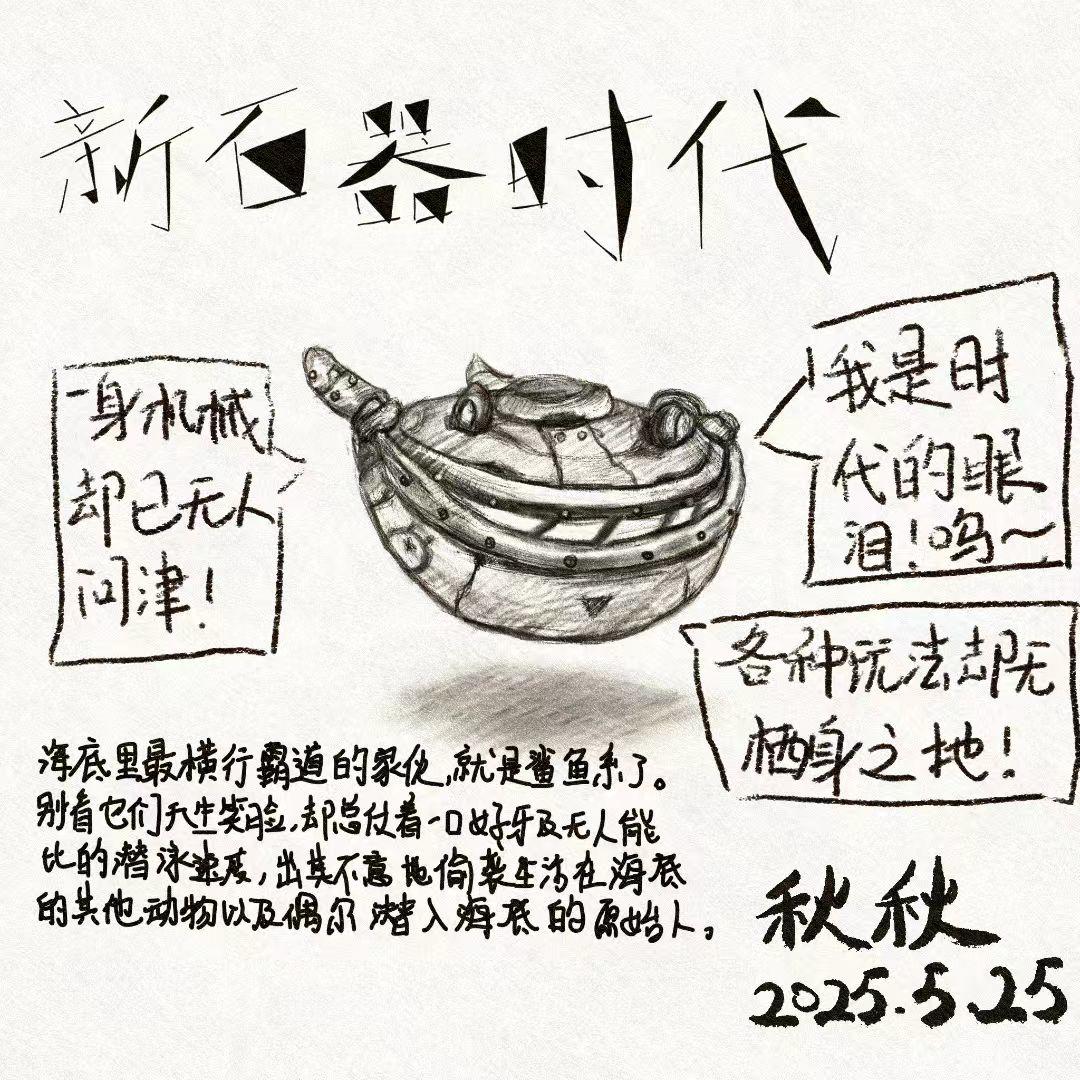 新石器时代
一身机械
却已无人
问津！
我是时
代的眼
泪！呜～
各种玩法却无
栖身之地！
海底里最横行霸道的家伙，就是鲨鱼系了。
别看它们天生笑脸，却总仗着一口好牙及无人能
比的潜泳速度，出其不意地偷袭生活在海底
的其他动物以及偶尔潜入海底的原始人。
秋秋
2025.5.25